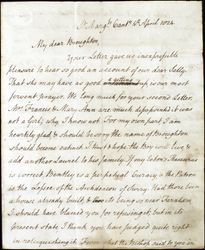 St Marg.ts Cant.y 6th April 1824
My dear Broughton,
Your Letter gave us inexpressible
pleasure to hear so good an account of our dear Sally
That she may have as good a getting up is our most
fervent prayer. We long much for your second Letter.
Mrs Francis & Mary Ann are much disappointed it was
not a Girl; why I know not. For my own part I am
heartily glad & should be sorry the name of Broughton
should become extinct I trust & hope the Boy will live to
add another laurel to his family. If my Cousin's
is correct Bentley is a perpetual Curacy & the Patron
is the Lessee of the Archdeacon of Surry. Had there been
a house already built, & it being so near Farnham
I should have blamed you for refusing it; but in its
present state I think you have judged quite right
in relinquishing it. From what the Bishop said to you in